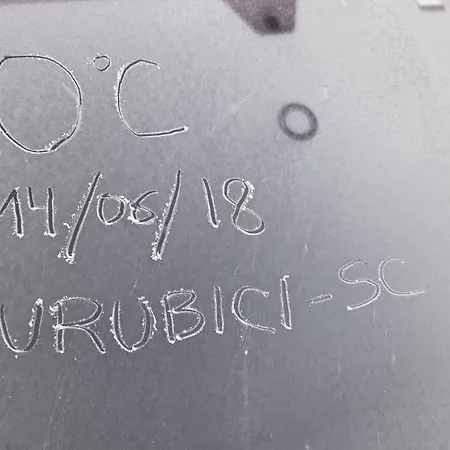 0°C
14/06/18
URUBICI-SC